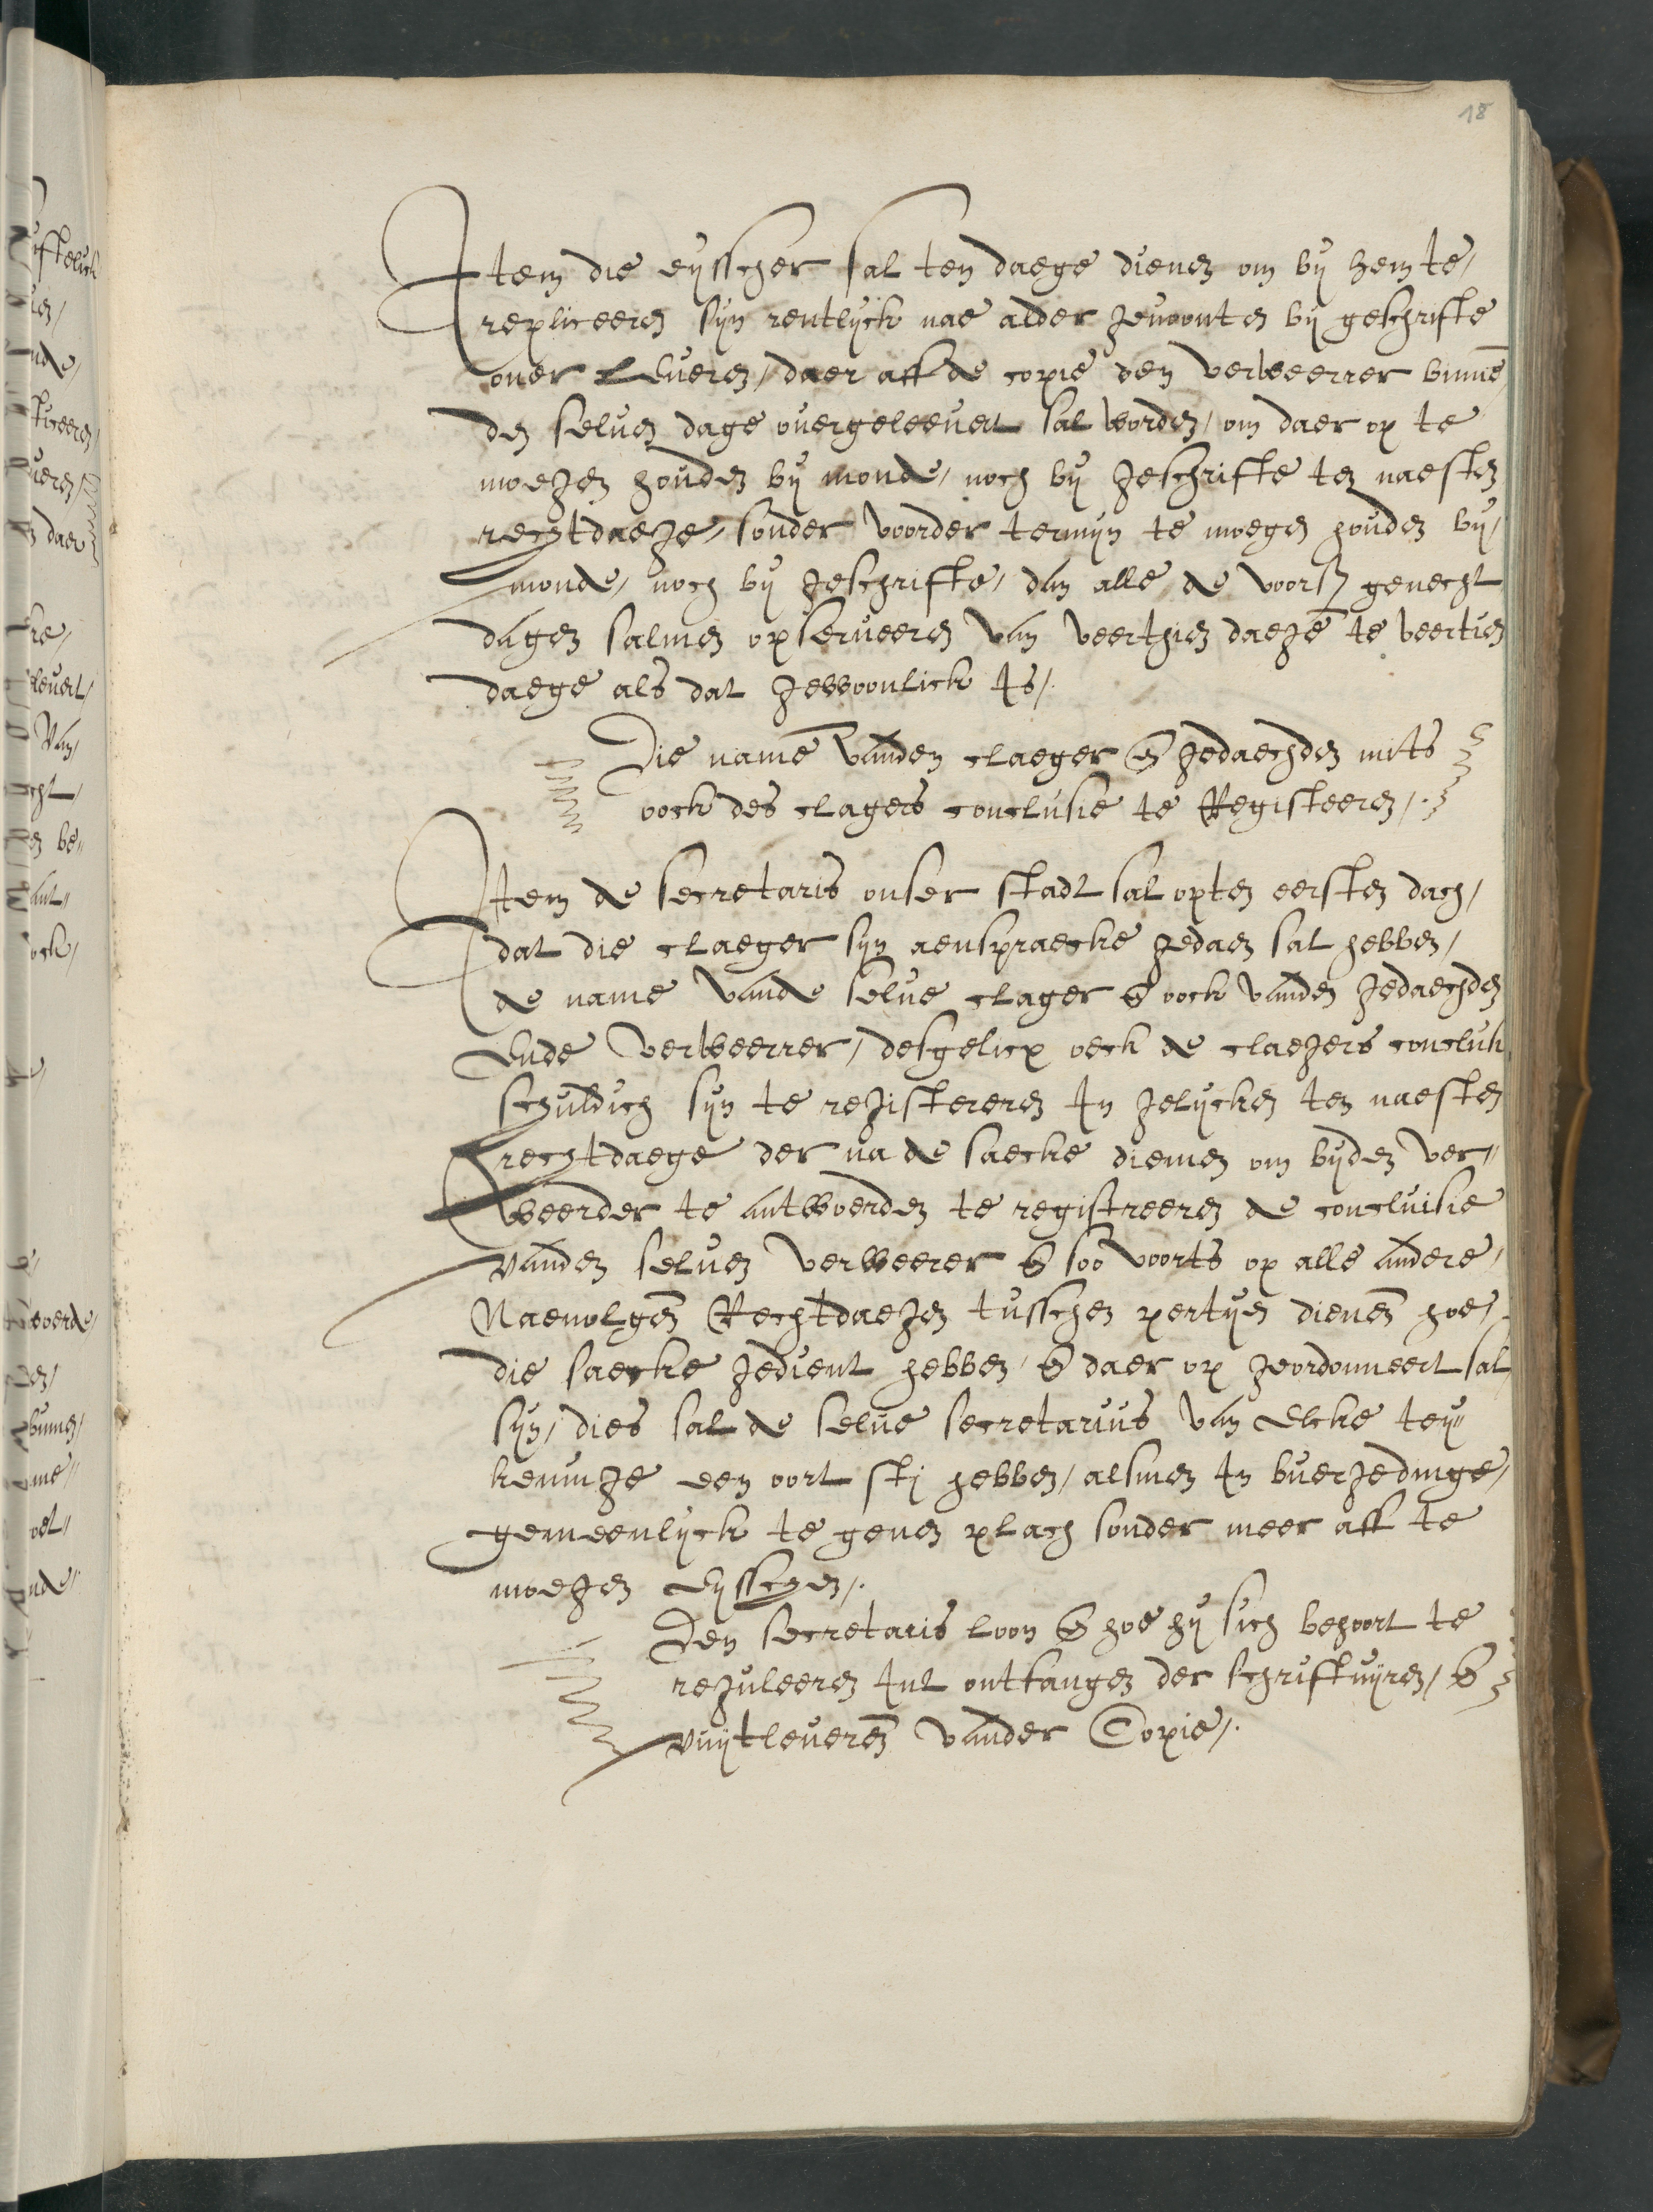 18
Item die eysscher sal ten daege dienen om by hem te /
repliceeren syn rentlyck nae alder gewoonten by geschrifte
over leveren / daer aff de copie den verweerrer binnē
den selven dage overgeleevert sal worden / om daer op te
moegen houden by monde / noch by geschrifte ten naesten
rechtdaege / sonder voorder termyn te moegen houden by /
monde / noch by geschrifte / dan alle de voorß genecht
dagen salmen opserveeren van veerthien daegē te veertien
daege als dat gewoonlick is /.
Die namē vanden claeger en gedaechden mits
oock des clagers conclusie te Registeeren /.
Item de secretaris onser stadt sal opten eersten dach /
dat die claeger syn aenspraecke gedaen sal hebben /
de name vande selve clager en oock vanden gedaechden
Ende verweerrer / desgelicx oeck de claegers conclusi
schuldich syn te registereren In gelycken ten naesten
rechtdaege der na de saecke dienen om byden ver"
weerder te antwoerden te registreeren de concluisie
vanden selven verweerer en soo voorts op alle andere /
Naevolgen Rechtdaegen tusschen pertyen dienen hoe /
die saecke gedient hebben / en daer op geordonneert sal
syn / dies sal de selve secretarius van Elcke tey"
keninge een oort stj hebben / alsmen In buergedinge /
gemeenlyck te geven plach sonder meer aff te
moegen Eysschen /.
Den secretaris loon en hoe hy sich behoort te
reguleeren Int ontfangen der schriftuyren / en
vuytleveren vander Copie /.